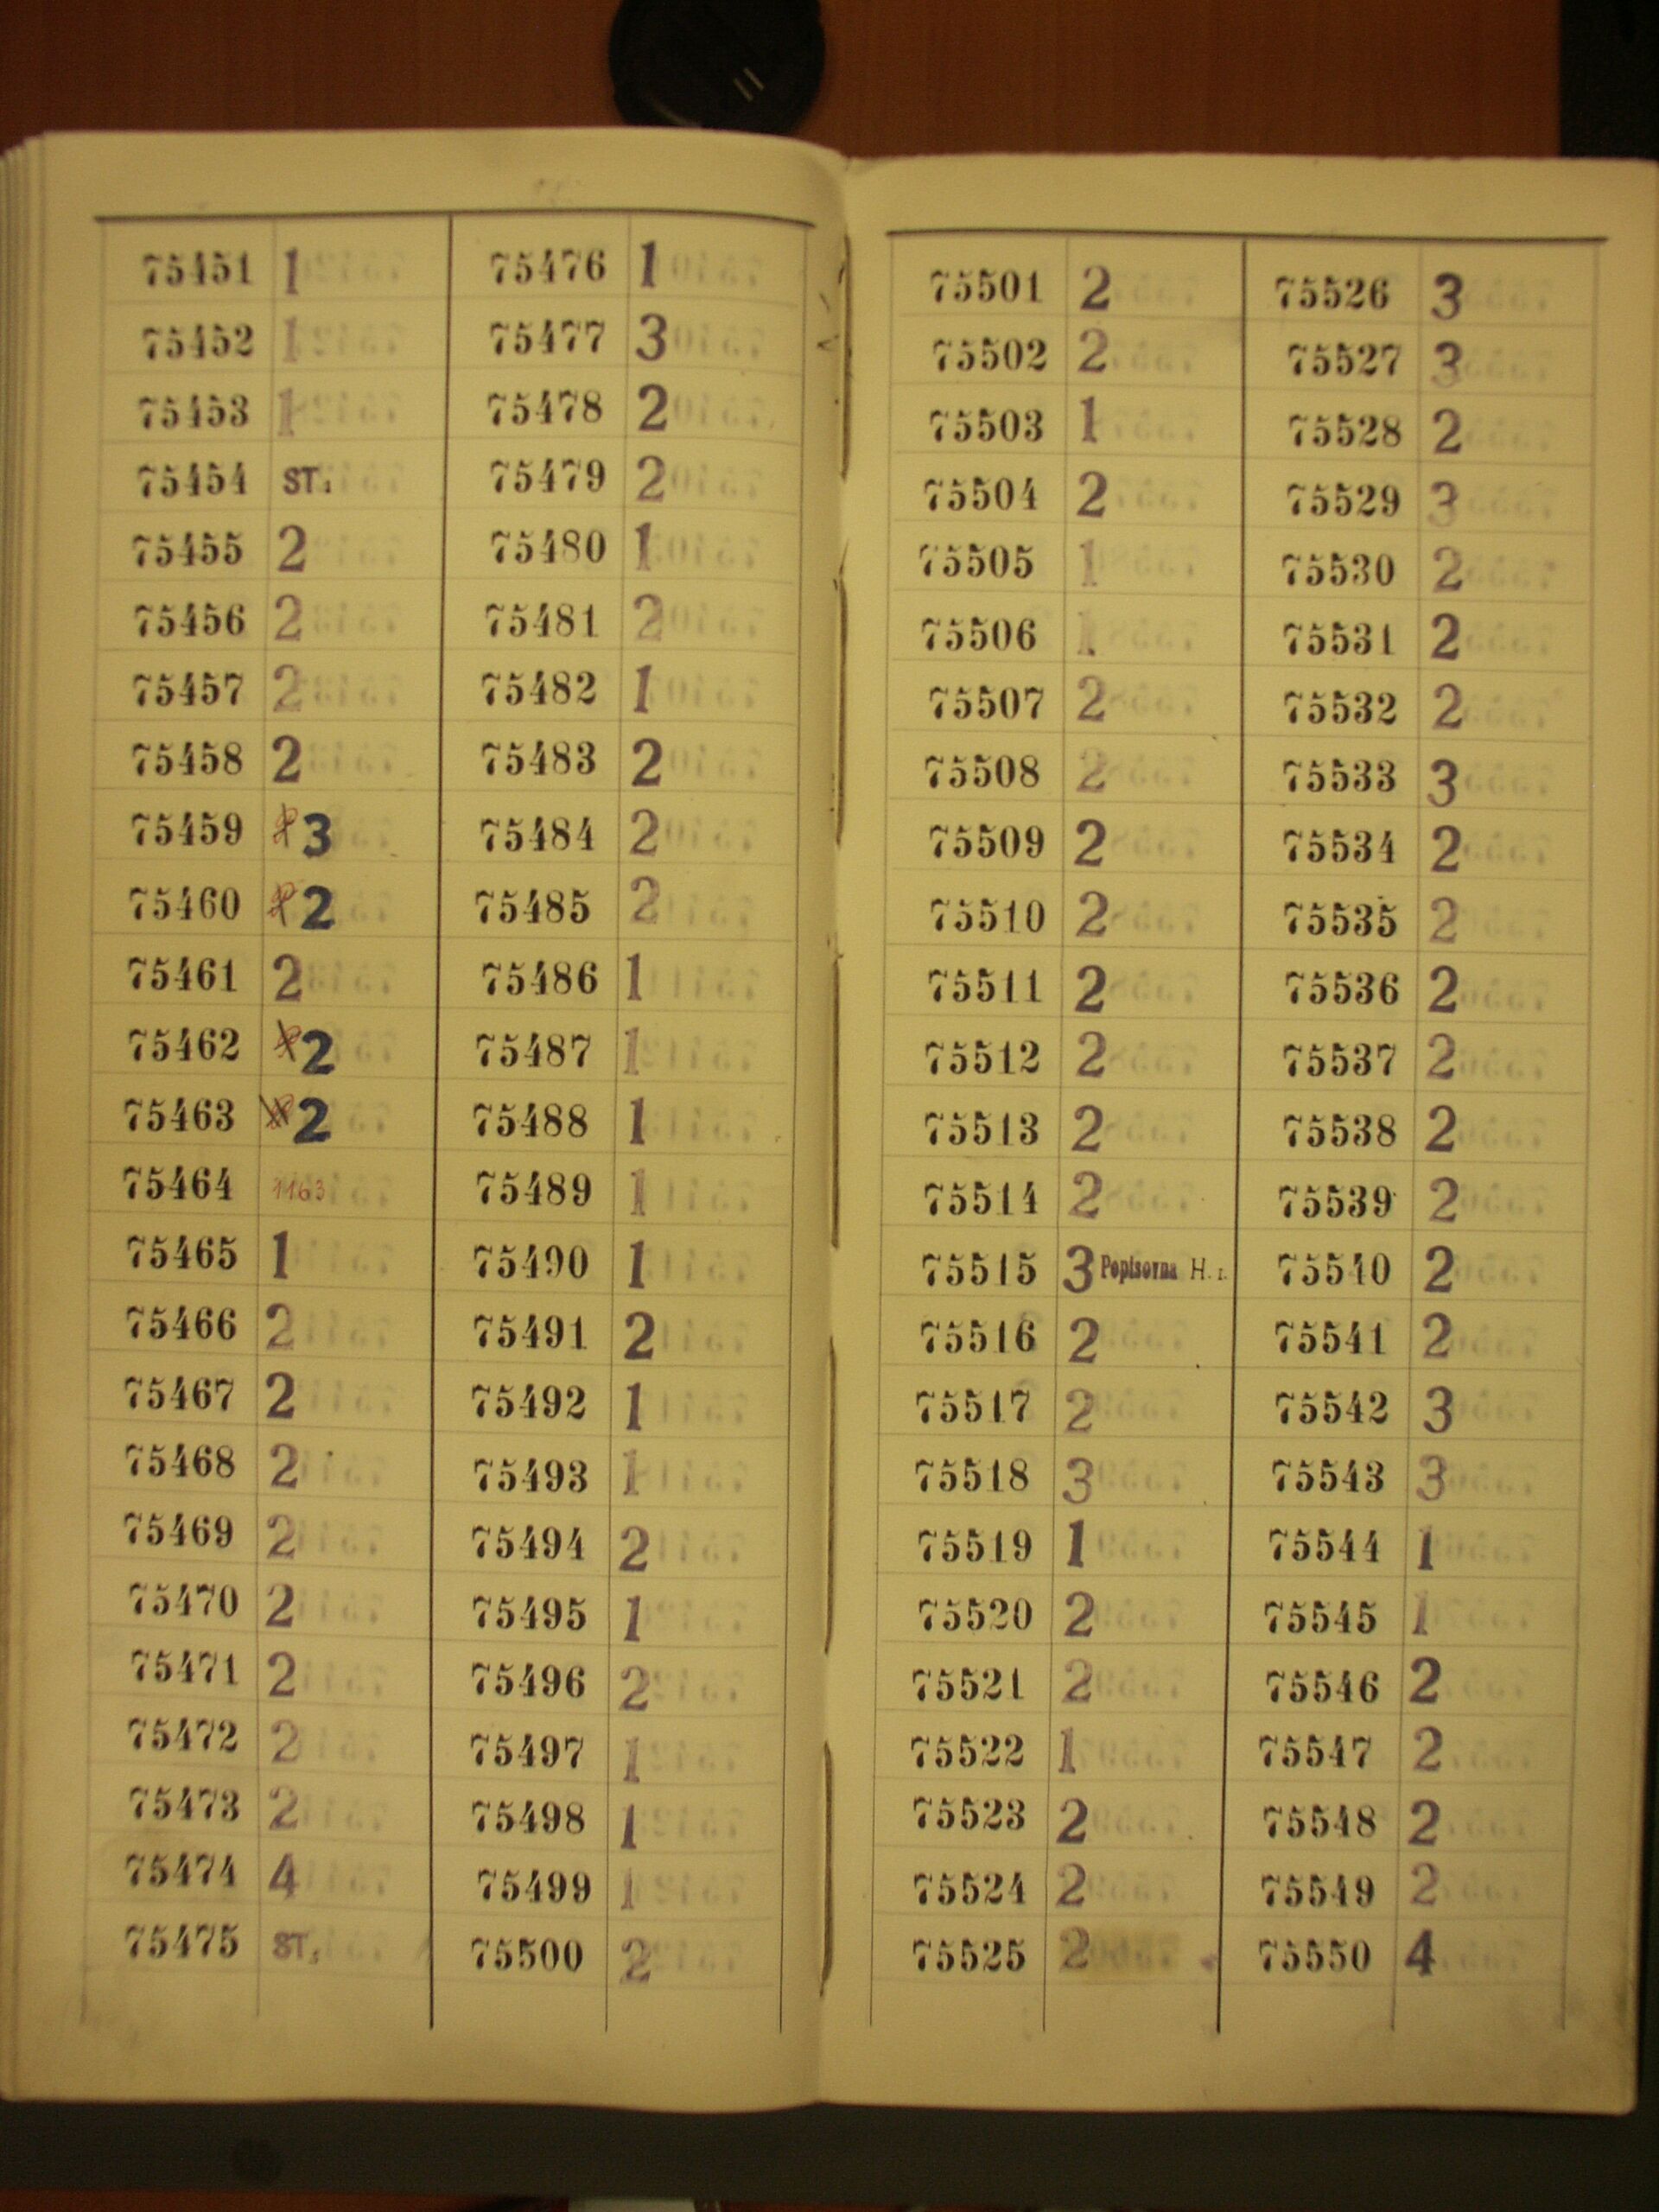 75451 1
75452 1
75453 1
75454 ST.
75455 2
75456 2
75457 2
75458 2
75459 3
75460 2
75461 2
75462 2
75463 2
75464 1163
75465 1
75466 2
75467 2
75468 2
75469 2
75470 2
75471 2
75472 2
75473 2
75474 4
75475 ST.
75476 1
75477 3
75478 2
75479 2
75480 1
75481 2
75482 1
75483 2
75484 2
75485 2
75486 1
75487 1
75488 1
75489 1
75490 1
75491 2
75492 1
75493 1
75494 2
75495 1
75496 2
75497 1
75498 1
75499 1
75500 2
75501 2
75502 2
75503 1
75504 2
75505 1
75506 1
75507 2
75508 2
75509 2
75510 2
75511 2
75512 2
75513 2
75514 2
75515 3 Popisovna H.
75516 2
75517 2
75518 3
75519 1
75520 2
75521 2
75522 1
75523 2
75524 2
75525 2
75526 3
75527 3
75528 2
75529 3
75530 2
75531 2
75532 2
75533 3
75534 2
75535 2
75536 2
75537 2
75538 2
75539 2
75540 2
75541 2
75542 3
75543 3
75544 1
75545 1
75546 2
75547 2
75548 2
75549 2
75550 4